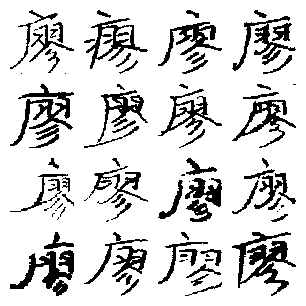 廖廖廖廖
廖廖廖廖
廖廖廖廖
廖廖廖廖